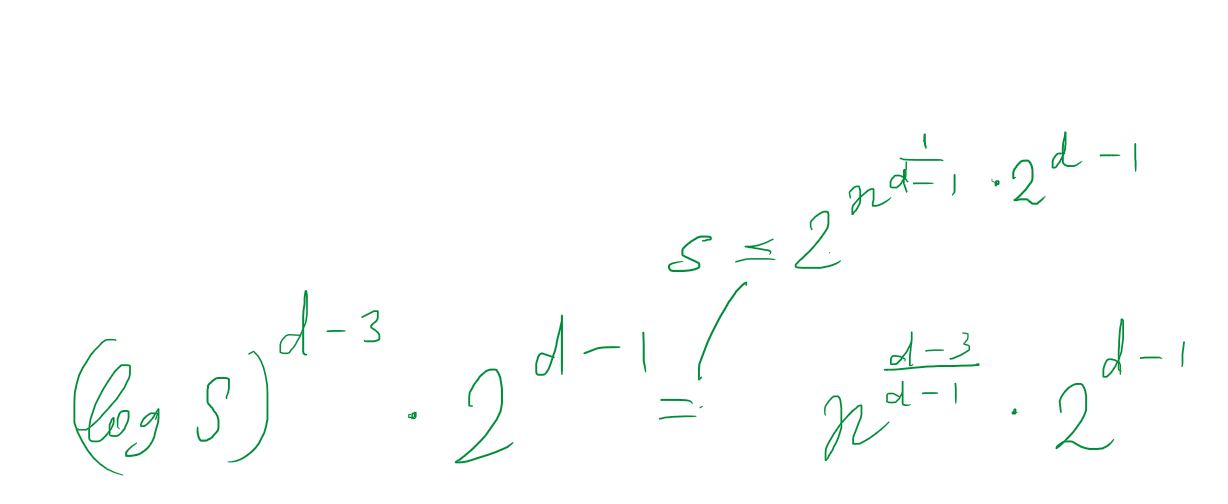 s ≤ 2^{n^{\frac{1}{d-1}} · 2^{d-1}}
(log s)^{d-3} · 2^{d-1} = n^{\frac{d-3}{d-1}} · 2^{d-1}